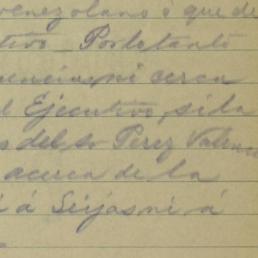 venezolano é que de
tivo Portotanto
encias, ni cerca
l Ejecutivo, si la
s del sr Perez Valen
acerca de la
i á Seijas ni á